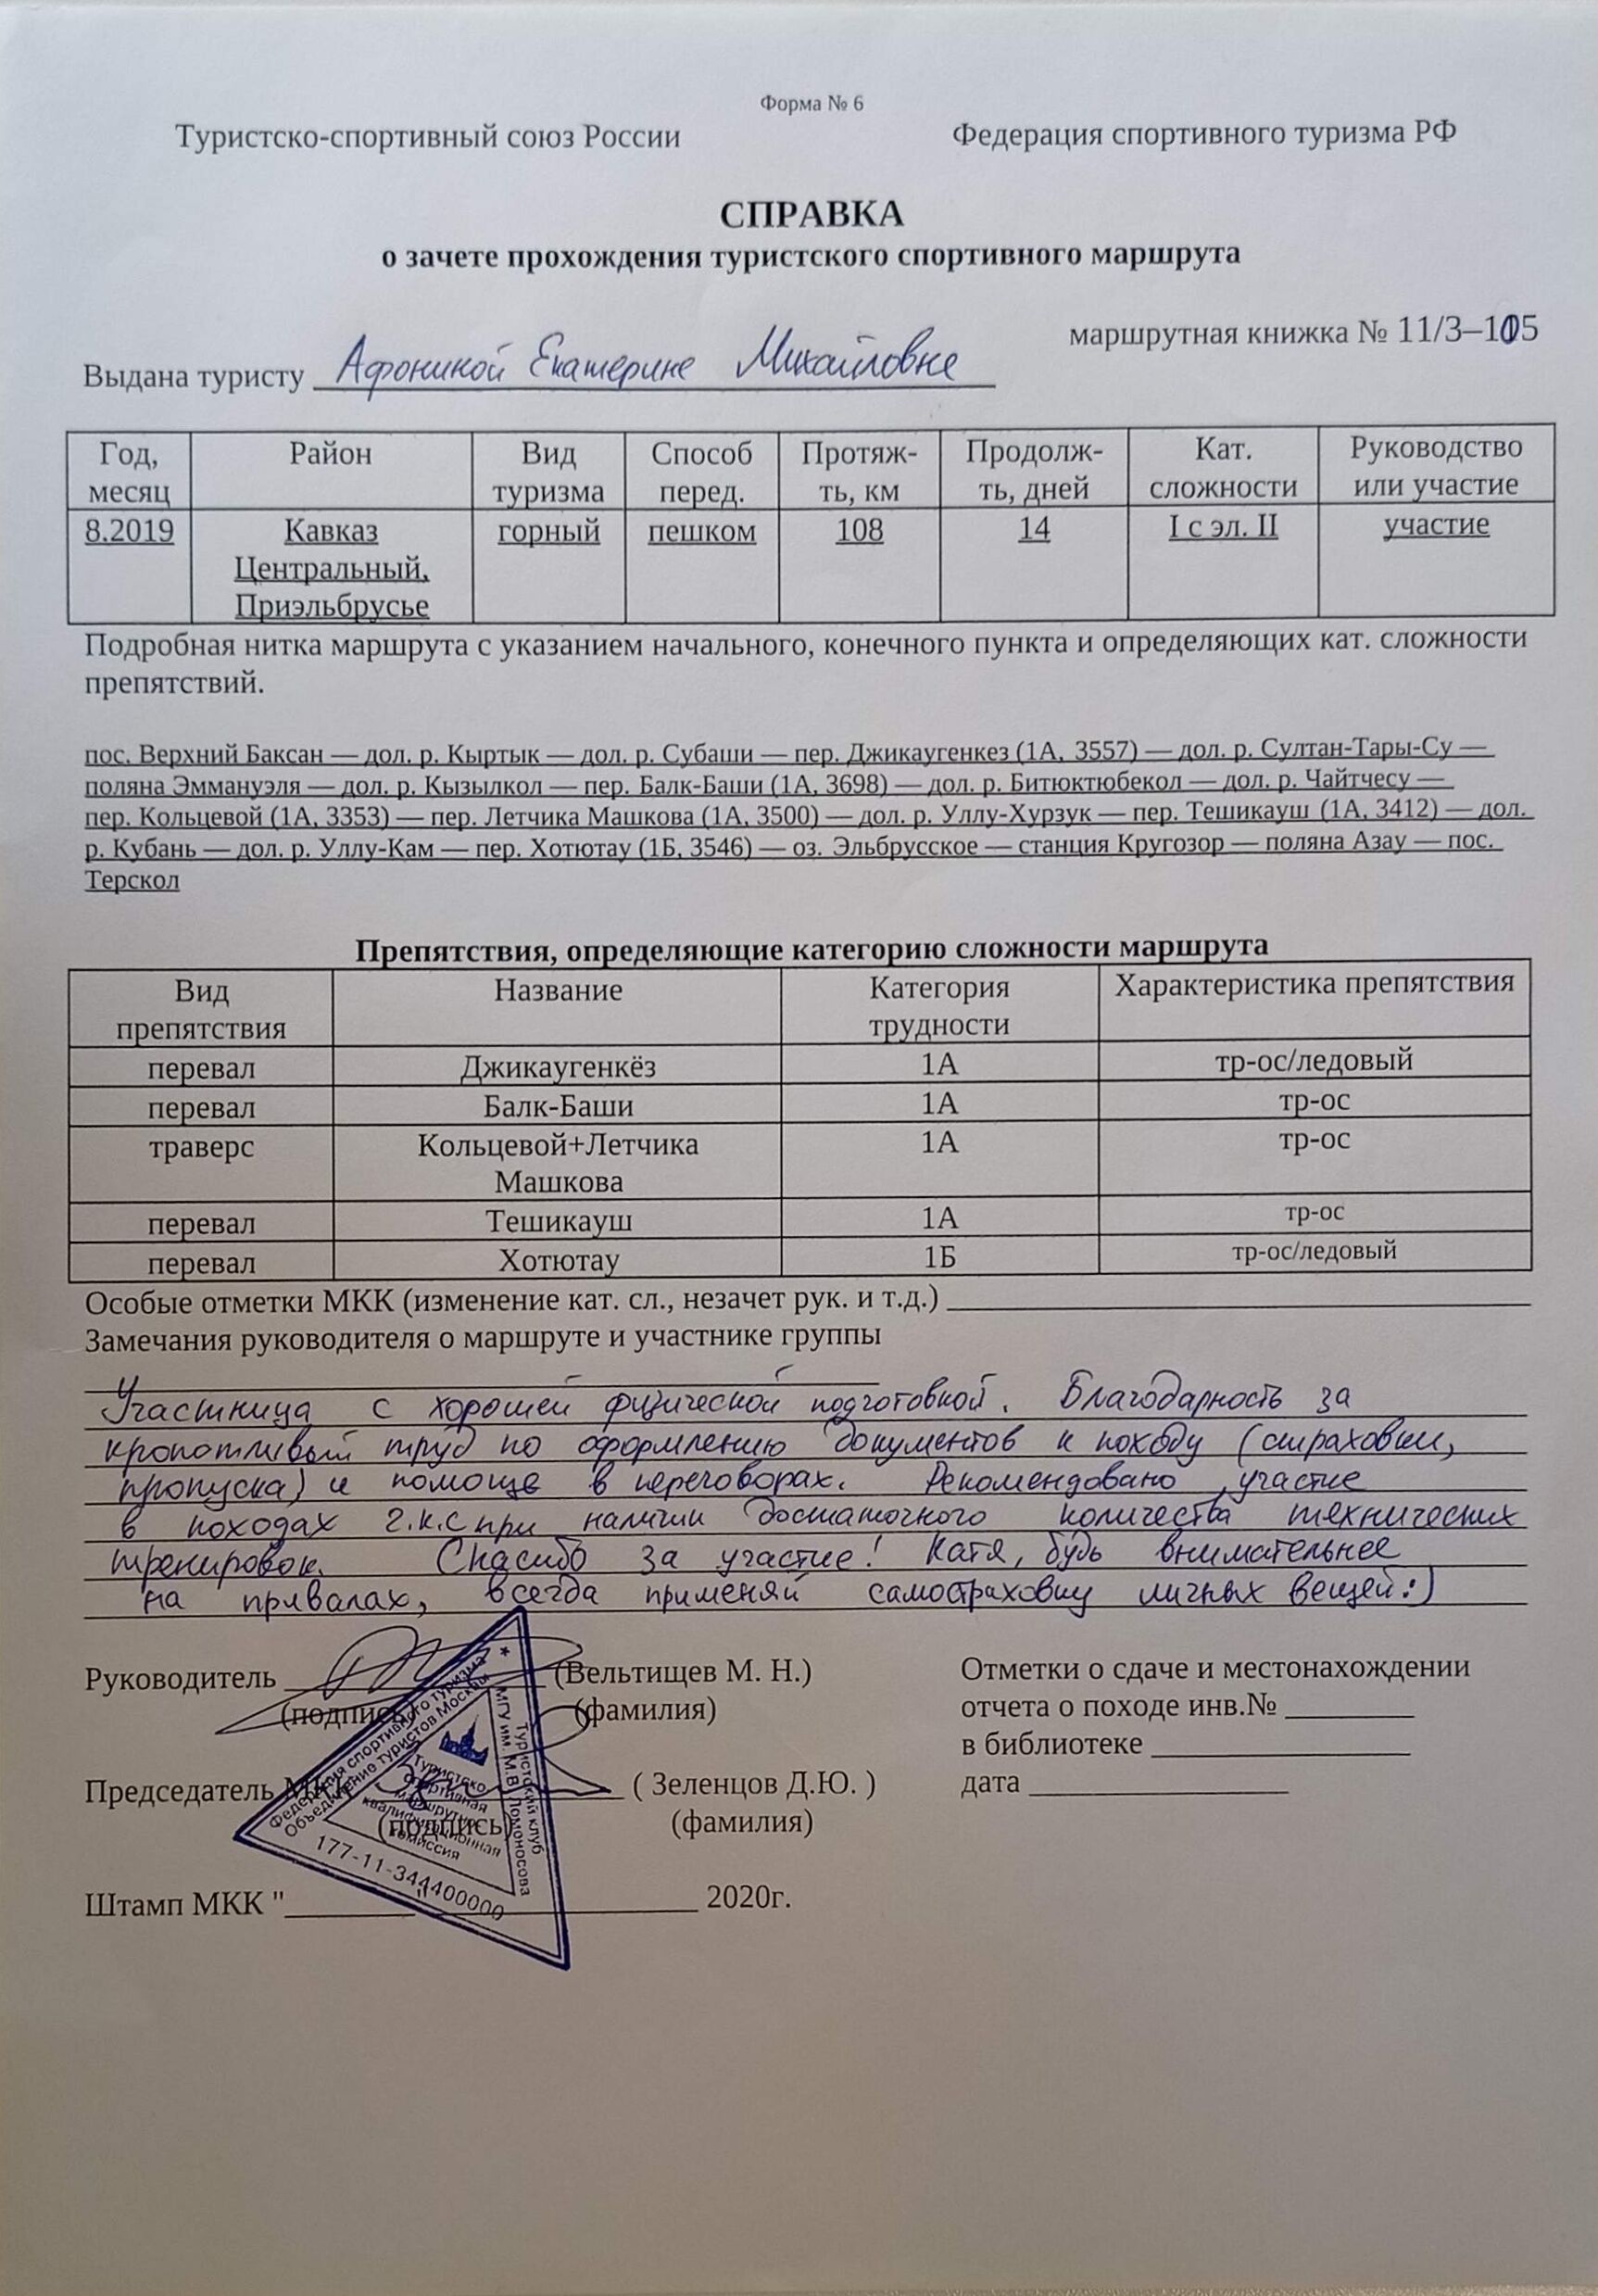 Форма № 6
Туристско-спортивный союз России Федерация спортивного туризма РФ
СПРАВКА
о зачете прохождения туристского спортивного маршрута
маршрутная книжка № 11/3–105
Выдана туристу Афониной Екатерине Михайловне
Год, месяц Район Вид туризма Способ перед. Протяж-ть, км Продолж-ть, дней Кат. сложности Руководство или участие
8.2019 Кавказ Центральный, Приэльбрусье горный пешком 108 14 I с эл. II участие
Подробная нитка маршрута с указанием начального, конечного пункта и определяющих кат. сложности
препятствий.
пос. Верхний Баксан — дол. р. Кыртык — дол. р. Субаши — пер. Джикаугенкез (1А, 3557) — дол. р. Султан-Тары-Су —
поляна Эммануэля — дол. р. Кызылкол — пер. Балк-Баши (1А, 3698) — дол. р. Битюктюбекол — дол. р. Чайтчесу —
пер. Кольцевой (1А, 3353) — пер. Летчика Машкова (1А, 3500) — дол. р. Уллу-Хурзук — пер. Тешикауш (1А, 3412) — дол.
р. Кубань — дол. р. Уллу-Кам — пер. Хотютау (1Б, 3546) — оз. Эльбрусское — станция Кругозор — поляна Азау — пос.
Терскол
Препятствия, определяющие категорию сложности маршрута
Вид препятствия Название Категория трудности Характеристика препятствия
перевал Джикаугенкёз 1А тр-ос/ледовый
перевал Балк-Баши 1А тр-ос
траверс Кольцевой+Летчика Машкова 1А тр-ос
перевал Тешикауш 1А тр-ос
перевал Хотютау 1Б тр-ос/ледовый
Особые отметки МКК (изменение кат. сл., незачет рук. и т.д.)
Замечания руководителя о маршруте и участнике группы
Участница с хорошей физической подготовкой. Благодарность за
кропотливый труд по оформлению документов к походу (страховки,
пропуска) и помощь в переговорах. Рекомендовано участие
в походах 2.к.с при наличии достаточного количества технических
тренировок. Спасибо за участие! Катя, будь внимательнее
на привалах, всегда применяй самостраховку личных вещей:)
Руководитель (Вельтищев М. Н.)
(подпись) (фамилия)
Председатель МКК ( Зеленцов Д.Ю. )
(подпись) (фамилия)
Штамп МКК " " 2020г.
Отметки о сдаче и местонахождении
отчета о походе инв.№
в библиотеке
дата
Федерация спортивного туризма
Объединение туристов Москвы
Туристский клуб
МГУ им. М.В. Ломоносова
Туристско
спортивная
маршрутно
квалификационная
комиссия
177-11-34440000